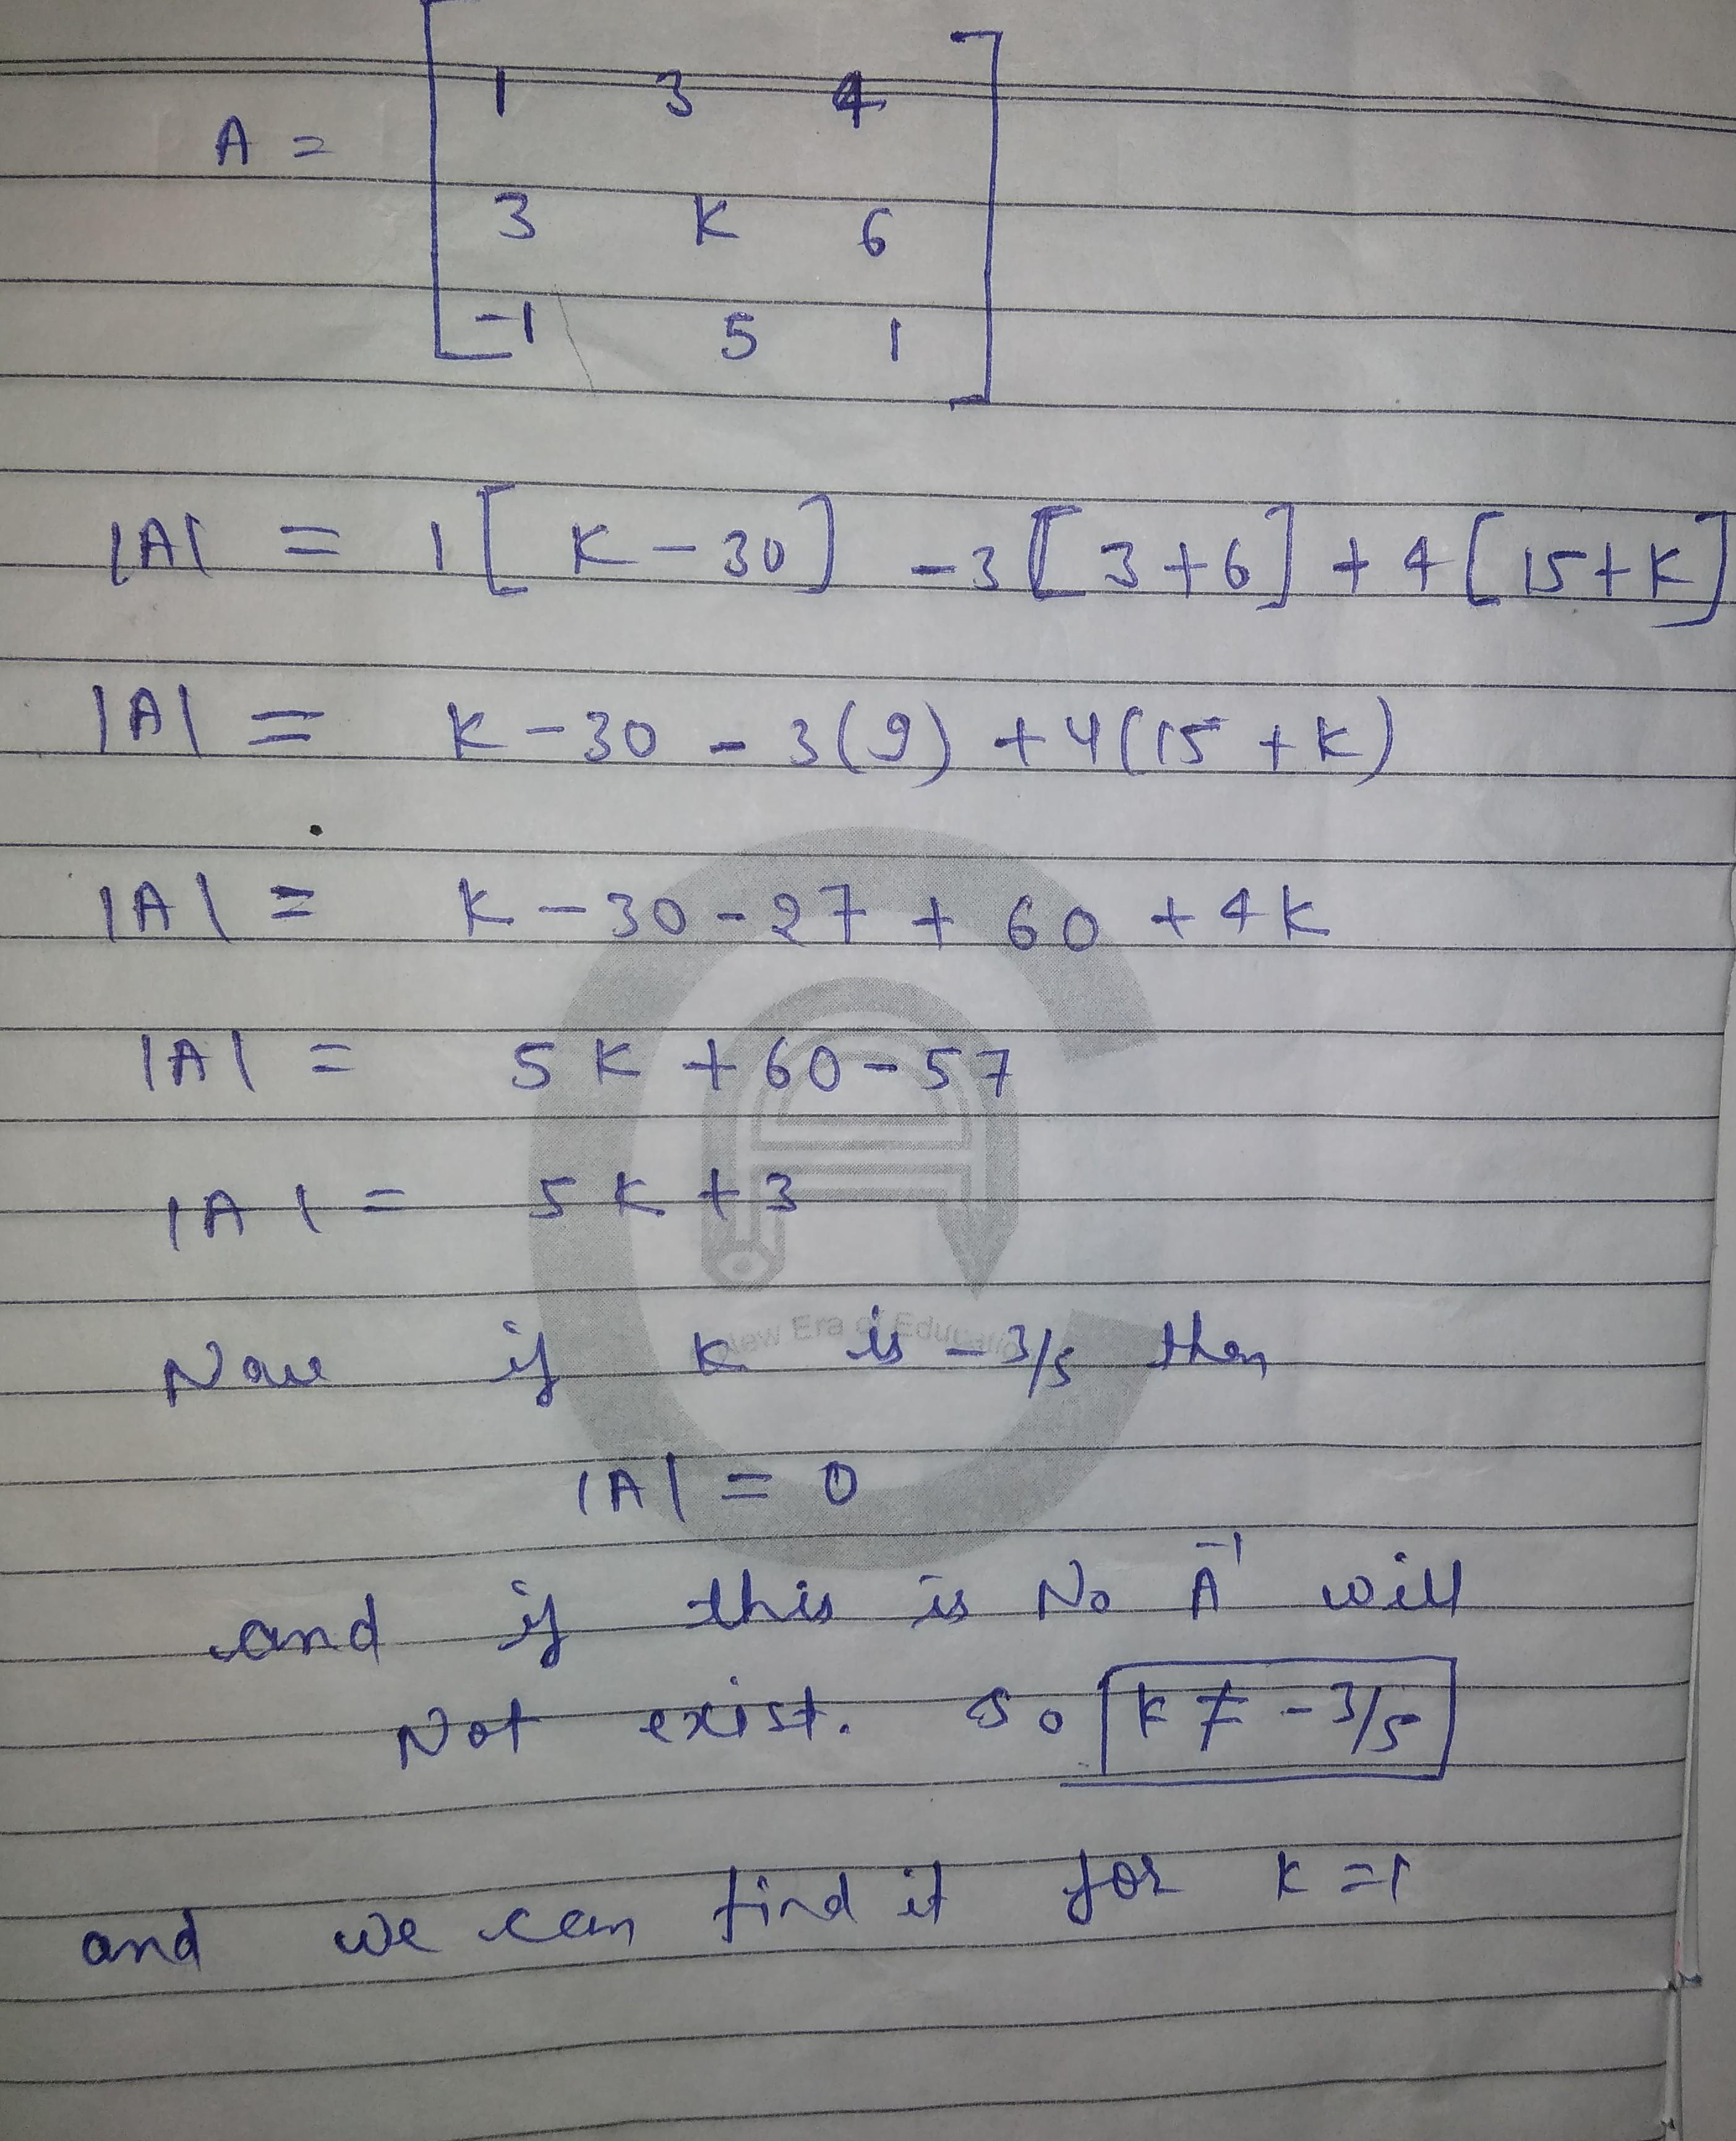 A = [ 1 3 4
3 K 6
-1 5 1 ]
|A| = 1 [ K - 30 ] - 3 [ 3 + 6 ] + 4 [ 15 + K ]
|A| = K - 30 - 3(9) + 4(15 + K)
|A| = K - 30 - 27 + 60 + 4K
|A| = 5K + 60 - 57
|A| = 5K + 3
New Era of Education
Now if K is - 3/5 then
|A| = 0
and if this is No A⁻¹ will
Not exist. so K ≠ - 3/5
and we can find it for K = 1